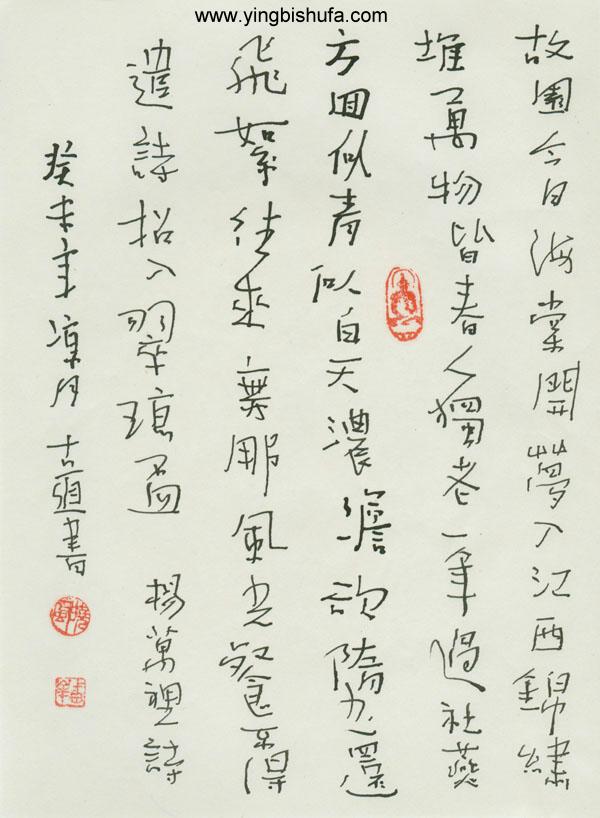 www.yingbishufa.com
故園今日海棠開夢入江西錦繡
堆萬物皆春人獨老一年過社燕
方回似青似白天濃澹欲墮還
飛絮往來無那風光餐不得
遣詩招入翠瓊盃 楊萬裡詩
癸未年涼月古書